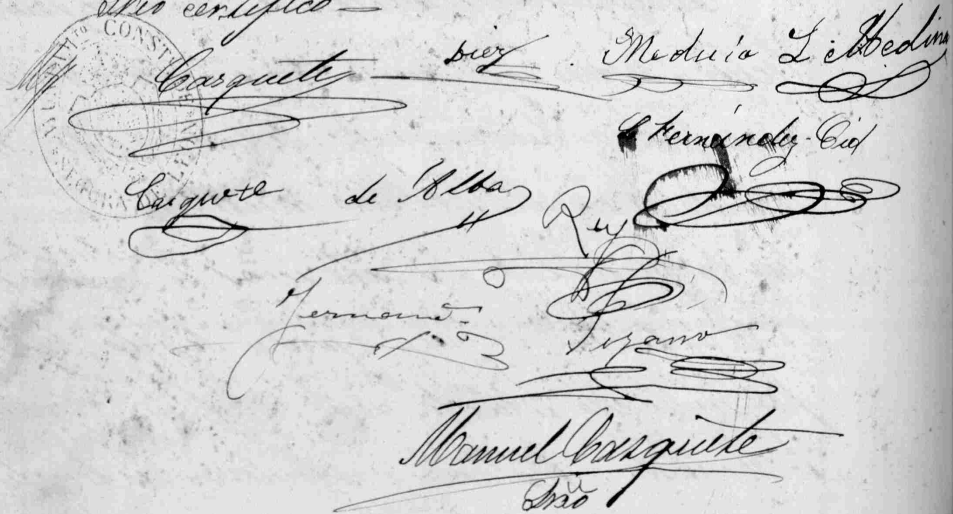 certifico —
Casquete Diez Medina L. Medina
Fernández-Cid
Casquete de Alba
Rey
Fernand
Pizarro
Manuel Casquete
Srio